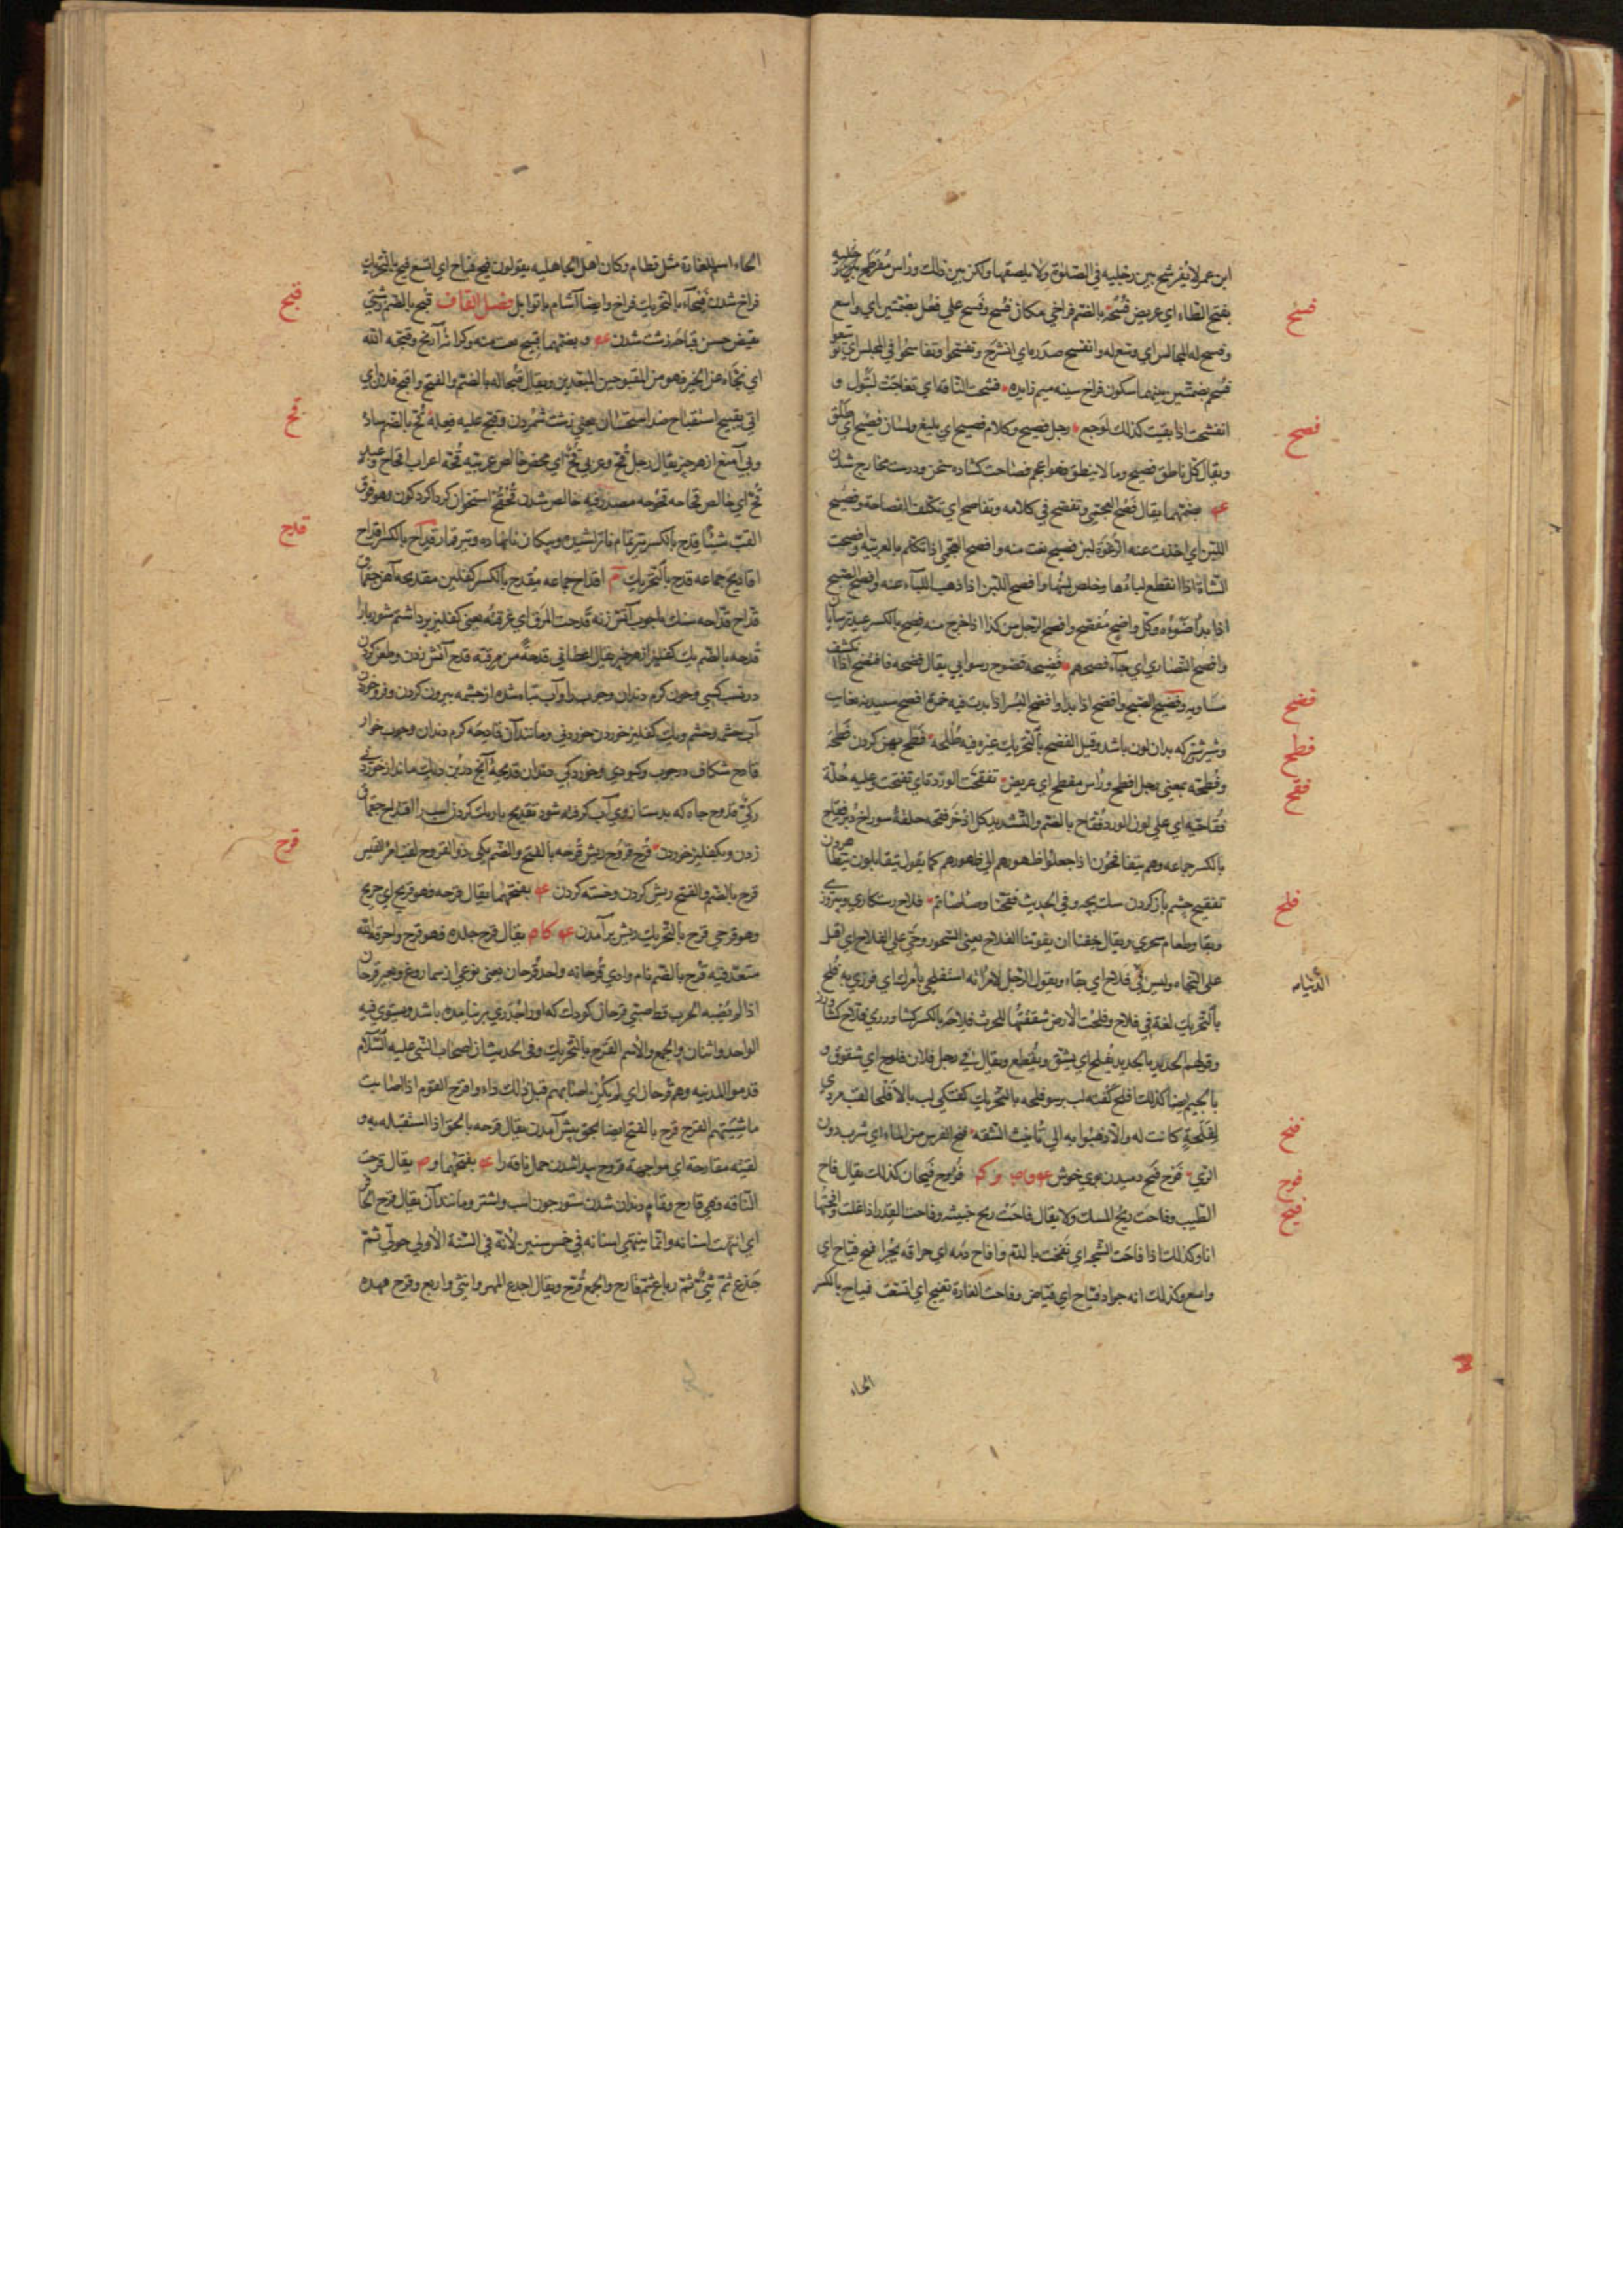 ابن عمر لا يفرشح بين رجليه في الصلوة ولا يلصقها ولكن بين ذلك وراس مفرطح رجليه
فسح
بفتح الطاء اي عريض فسحة بالضم فراخي مكان فسيح وفسح علي فعل بضمتين اي واسع
وفسح له المجالس اي وسع له وانفسح صدره اي انشرح وتفسحوا وتفاسحوا في المجلس اي توسعوا
فسحم بضمتين بينهما سكون فراخ سينه ميم زايده فشحت الناقه اي تفاجت لتبول و
فصح
انفشحت اذا بقيت كذلك لوجع رجل فصيح وكلام فصيح اي بليغ ولسان فصيح اي طلق
ويقال كل ناطق فصيح وما لا ينطق فهو اعجم فصاحت كشاده سخن ودرست مخارج شدن
عه بضمتهما يقال فصح العجمي وتفصح في كلامه وتفاصح اي تكلف الفصاحة وفصح
اللبن اي اخذت عنه الرغوة لبن فصيح نعت منه وافصح العجمي اذا تكلم بالعربيه وافصحت
الشاة اذا انقطع لباءها وخلص لبنها وافصح اللبن اذا ذهب اللباء عنه وافصح الصبح
اذا بدا ضوءه وكل واضح مفصح وافصح الرجل من كذا اذا خرج منه فصح بالكسر عيد ترسايان
وافصح النصاري اي جآء فصحهم فضيحه فضوح رسوايي يقال فضحه فافتضح اذا انكشف
فضح
مساويه وفضح الصبح وافضح اذا بدا وافضح البسر اذا بدت فيه حمرة افضح سپيد نه بغايت
فطح
وشير شتر كه بدان لون باشد وقيل الفضح بالتحريك غبره فيه طلحة فطح پهن كردن فطحه
فقح
وفطحته بمعني رجل افطح وراس مفطح اي عريض تفقحت الوردة اي تفتحت وعليه حلة
فقاحية اي علي لون الورد فقاح بالضم والتشديد كل اذخر فقحه حلقه سوراخ دبر فقاح
بالكسر جماعه وهم يتفاقحون اذا جعلوا ظهورهم الي ظهورهم كما يقول يتقابلون يتظاهرون
فلح
تفقيح چشم باز كردن سك بچه وفي الحديث فقحنا وصاصاتم فلاح رستكاري وپيروزي
وبقا وطعام سحري ويقال خفنا ان يفوتنا الفلاح يعني السحور وحي علي الفلاح اي اقبل
علي النجاه وليس في فلاح اي بقاء ويقول الرجل لامراته استفلحي بامرك اي فوزي به فلح
بالتحريك لغة في فلاح وفلحت الارض شققتها للحرث فلاحه بالكسر كشاورزي فلاح كشاورز
وقولهم الحديد بالحديد يفلح اي يشق ويقطع ويقال في رجل فلان فلوح اي شقوق و
بالجيم ايضا كذلك افلح كفته لب برسو فلحه بالتحريك كفتكي لب بالا فلحا لقب مردي
فنح
لفلحة كانت له والاذهبوا به الي تانيث الشفه فنح الفرس من الماء اي شرب دون
فوح
الري فوح فيح دميدن بوي خوش فووح فيحان كذلك يقال فاح
فيح
الطيب وفاحت ريح المسك ولا يقال فاحت ريح خبيثه وفاحت القدر اذا غلت وافحتها
انا وكذلك اذا فاحت الشجه اي نفحت بالدم وافاح دمه اي هراقه بحر افيح فياح اي
واسع وكذلك انه جواد فياح اي فياض وفاحت الغارة تفيح اي اتسعت فياح بالكسر
الحاء
الحاء اسم الغارة مثل قطام وكان اهل الجاهليه يقولون فيحي فياح اي اتسع فيح بالتحريك
قبح
فراخ شدن فيحاء بالتحريك فراخ وايضا آشام با توابل فصل القاف قبح بالضم زشتي
نقيض حسن قباحه زشت شدن عه بضمتهما قبيح نعت منه وكرانه آرنج وقبحه الله
اي نحاه عن الخير فهو من المقبوحين المبعدين ويقال قبحا له بالضم والفتح واقبح فلان اي
قح
اتي بقبيح استقباح ضد استحسان يعني زشت شمردن وقبح عليه فعله قح بالضم ساده
وبي آميغ از هر چيز يقال رجل قح وعربي قح اي محض خالص عربيته قحه اعراب اقحاح وعبد
قح اي خالص قحاحه قحوحه مصدر فيه خالص شدن قحقح استخوان كرداكرد كون وهو فوق
قدح
القب شيئا قدح بالكسر تير تمام ناتراشيده وپيكان نانهاده وتير قمار قداح بالكسر اقداح
اقاديح جماعه قدح بالتحريك اقداح جماعه مقدح بالكسر كفليز مقدحه آهن چقماق
قداح قداحه سنك ياچوب آتش زنه قدحت المرق اي غرفته يعني كفليز برداشتم شوربا را
قدحه بالضم يك كفليز از هر چيز يقال اعطاني قدحة من مرقته قدح آتش زدن وطعن كردن
در نسب كسي وخون كرم دندان وچوب را وآب تباه شده از چشمه بيرون كردن وفروخوردن
آب چشمه وچشم ويك كفليز خوردن خوردني ومانند آن قادحه كرم دندان وچوب خوار
قادح شكاف در چوب وكبودي وخوردكي دندان قديحه آنچه در بن ديك ماند از خوردني
ركي قدوح چاه كه بدست از وي آب كرفته شود تقديح باريك كردن اسب را اقتداح چقماق
قرح
زدن وبكفليز خوردن قرح قروح ريش قرحه بالفتح والضم يكي ذو القروح لقب امرء القيس
قرح بالضم والفتح ريش كردن وخسته كردن عه بفتحهما يقال قرحه فهو قريح اي جريح
وهو قرحي قرح بالتحريك ريش برآمدن يقال قرح جلده فهو قرح واقرحه الله
متعد فيه قرح بالضم نام وادي قرحانه واحد قرحان يعني نوعي از سماروغ وبعير قرحان
اذا لم يصبه الجرب قط وصبي قرحان كودك كه او را جدري بر نيامده باشد ويستوي فيه
الواحد واثنان والجمع والاسم القرح بالتحريك وفي الحديث ان اصحاب النبي عليه السلام
قدموا المدينه وهم قرحان اي لم يكن اصابهم قبل ذلك داء واقرح القوم اذا اصابت
ماشيتهم القرح قرح بالفتح ايضا بحق پيش آمدن يقال قرحه بالحق اذا استقبله به و
لقيته مقارحة اي مواجهة قروح پيدا شدن حمل ناقه را عه بفتحهما يقال قرحت
الناقه وهي قارح وتمام دندان شدن ستور چون اسب واشتر ومانند آن يقال قرح الحافر
اي انتهت اسنانه وانما ينتهي اسنانه في خمس سنين لانه في السنة الاولي حولي ثم
جذع ثم ثني ثم رباع ثم قارح والجمع قرح ويقال اجذع المهر واثني واربع وقرح هذه